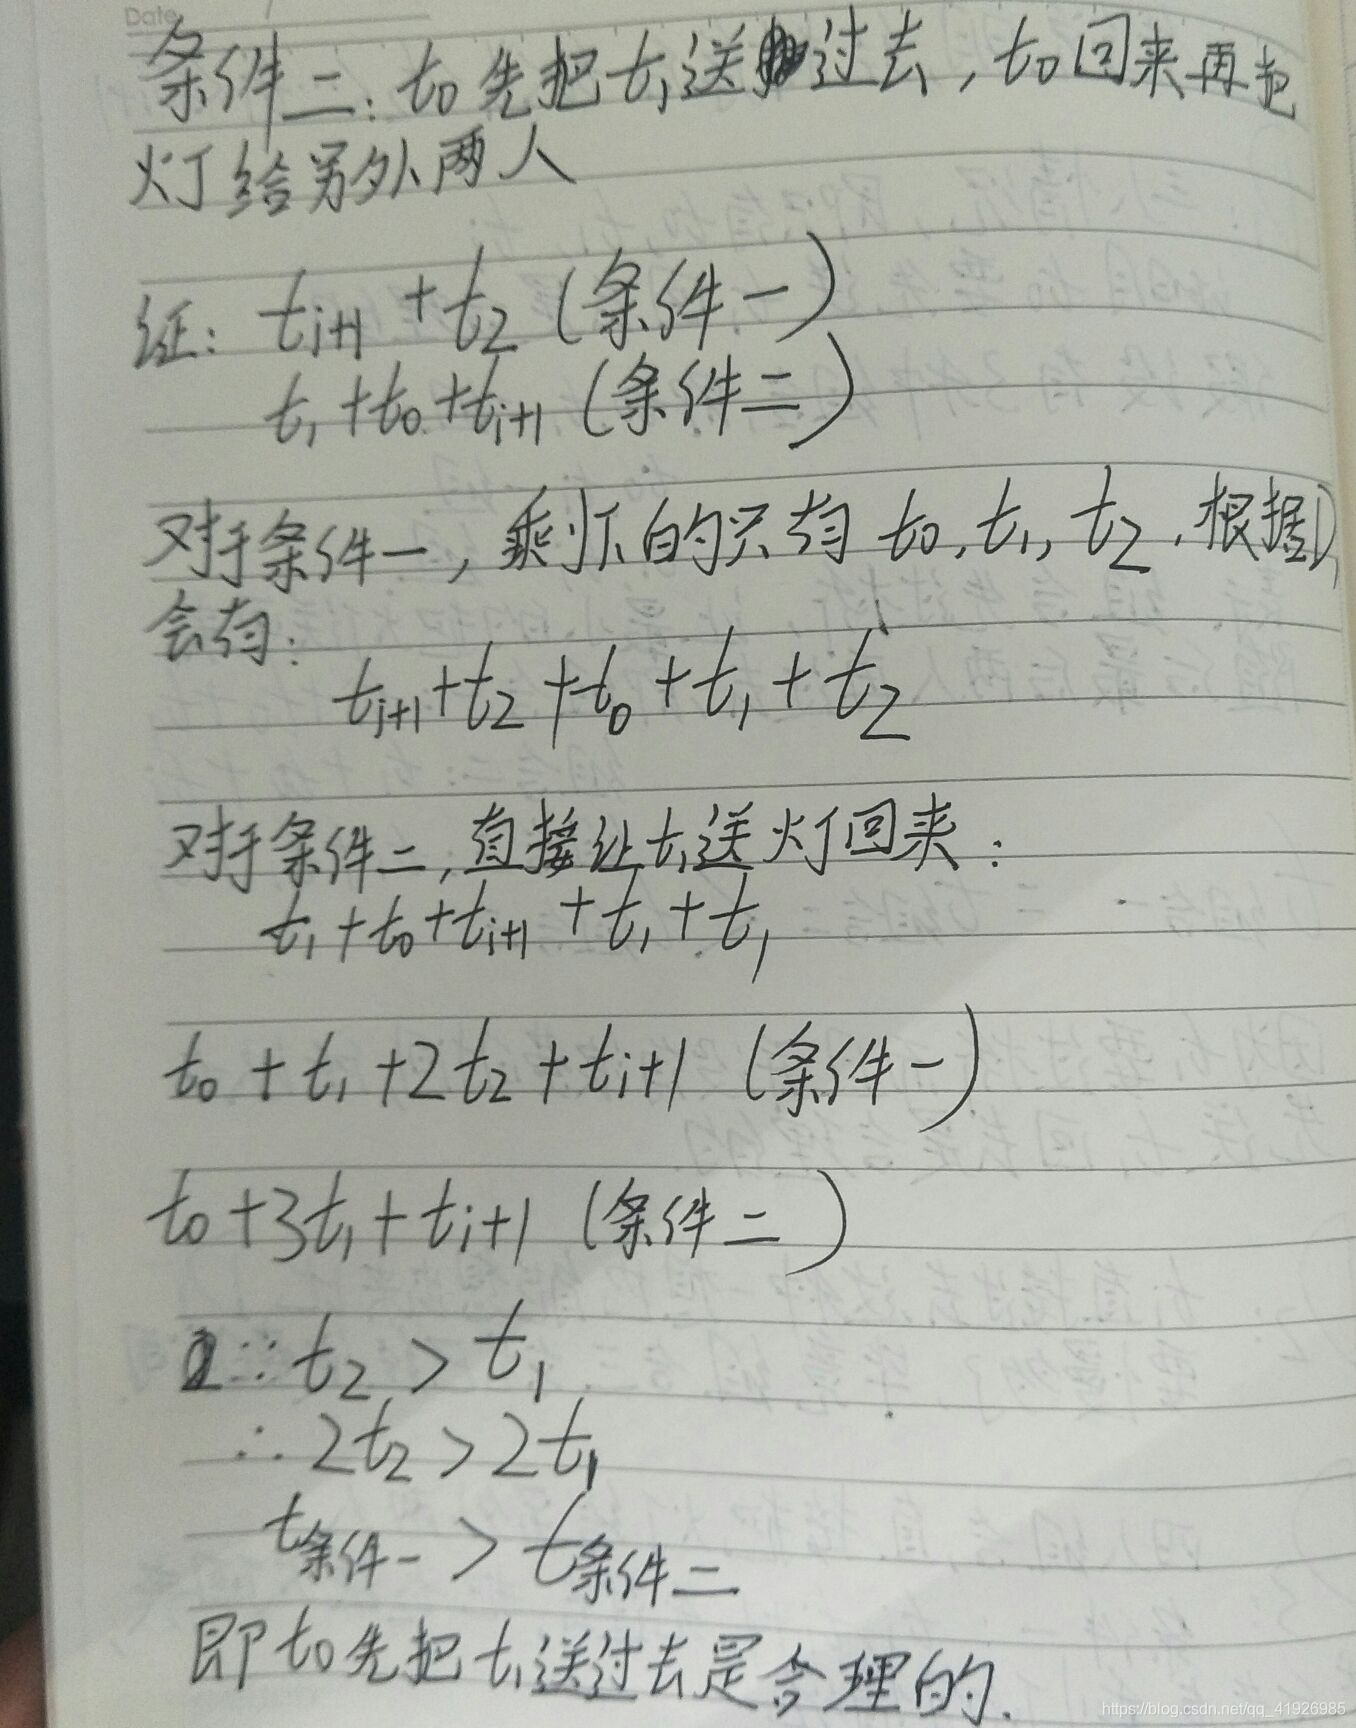 Date
条件二：t₀先把t₁送过去，t₀回来再把
灯给另外两人
证：tᵢ₊₁+t₂（条件一）
t₁+t₀+tᵢ₊₁（条件二）
对于条件一，剩下的只有 t₀,t₁,t₂,根据1)
会有：
tᵢ₊₁+t₂+t₀+t₁+t₂
对于条件二,直接让t₁送灯回来：
t₁+t₀+tᵢ₊₁+t₁+t₁
t₀+t₁+2t₂+tᵢ+1（条件一）
t₀+3t₁+tᵢ+1（条件二）
∵t₂>t₁
∴2t₂>2t₁
t条件一>t条件二
即t₀先把t₁送过去是合理的.
https://blog.csdn.net/qq_41926985